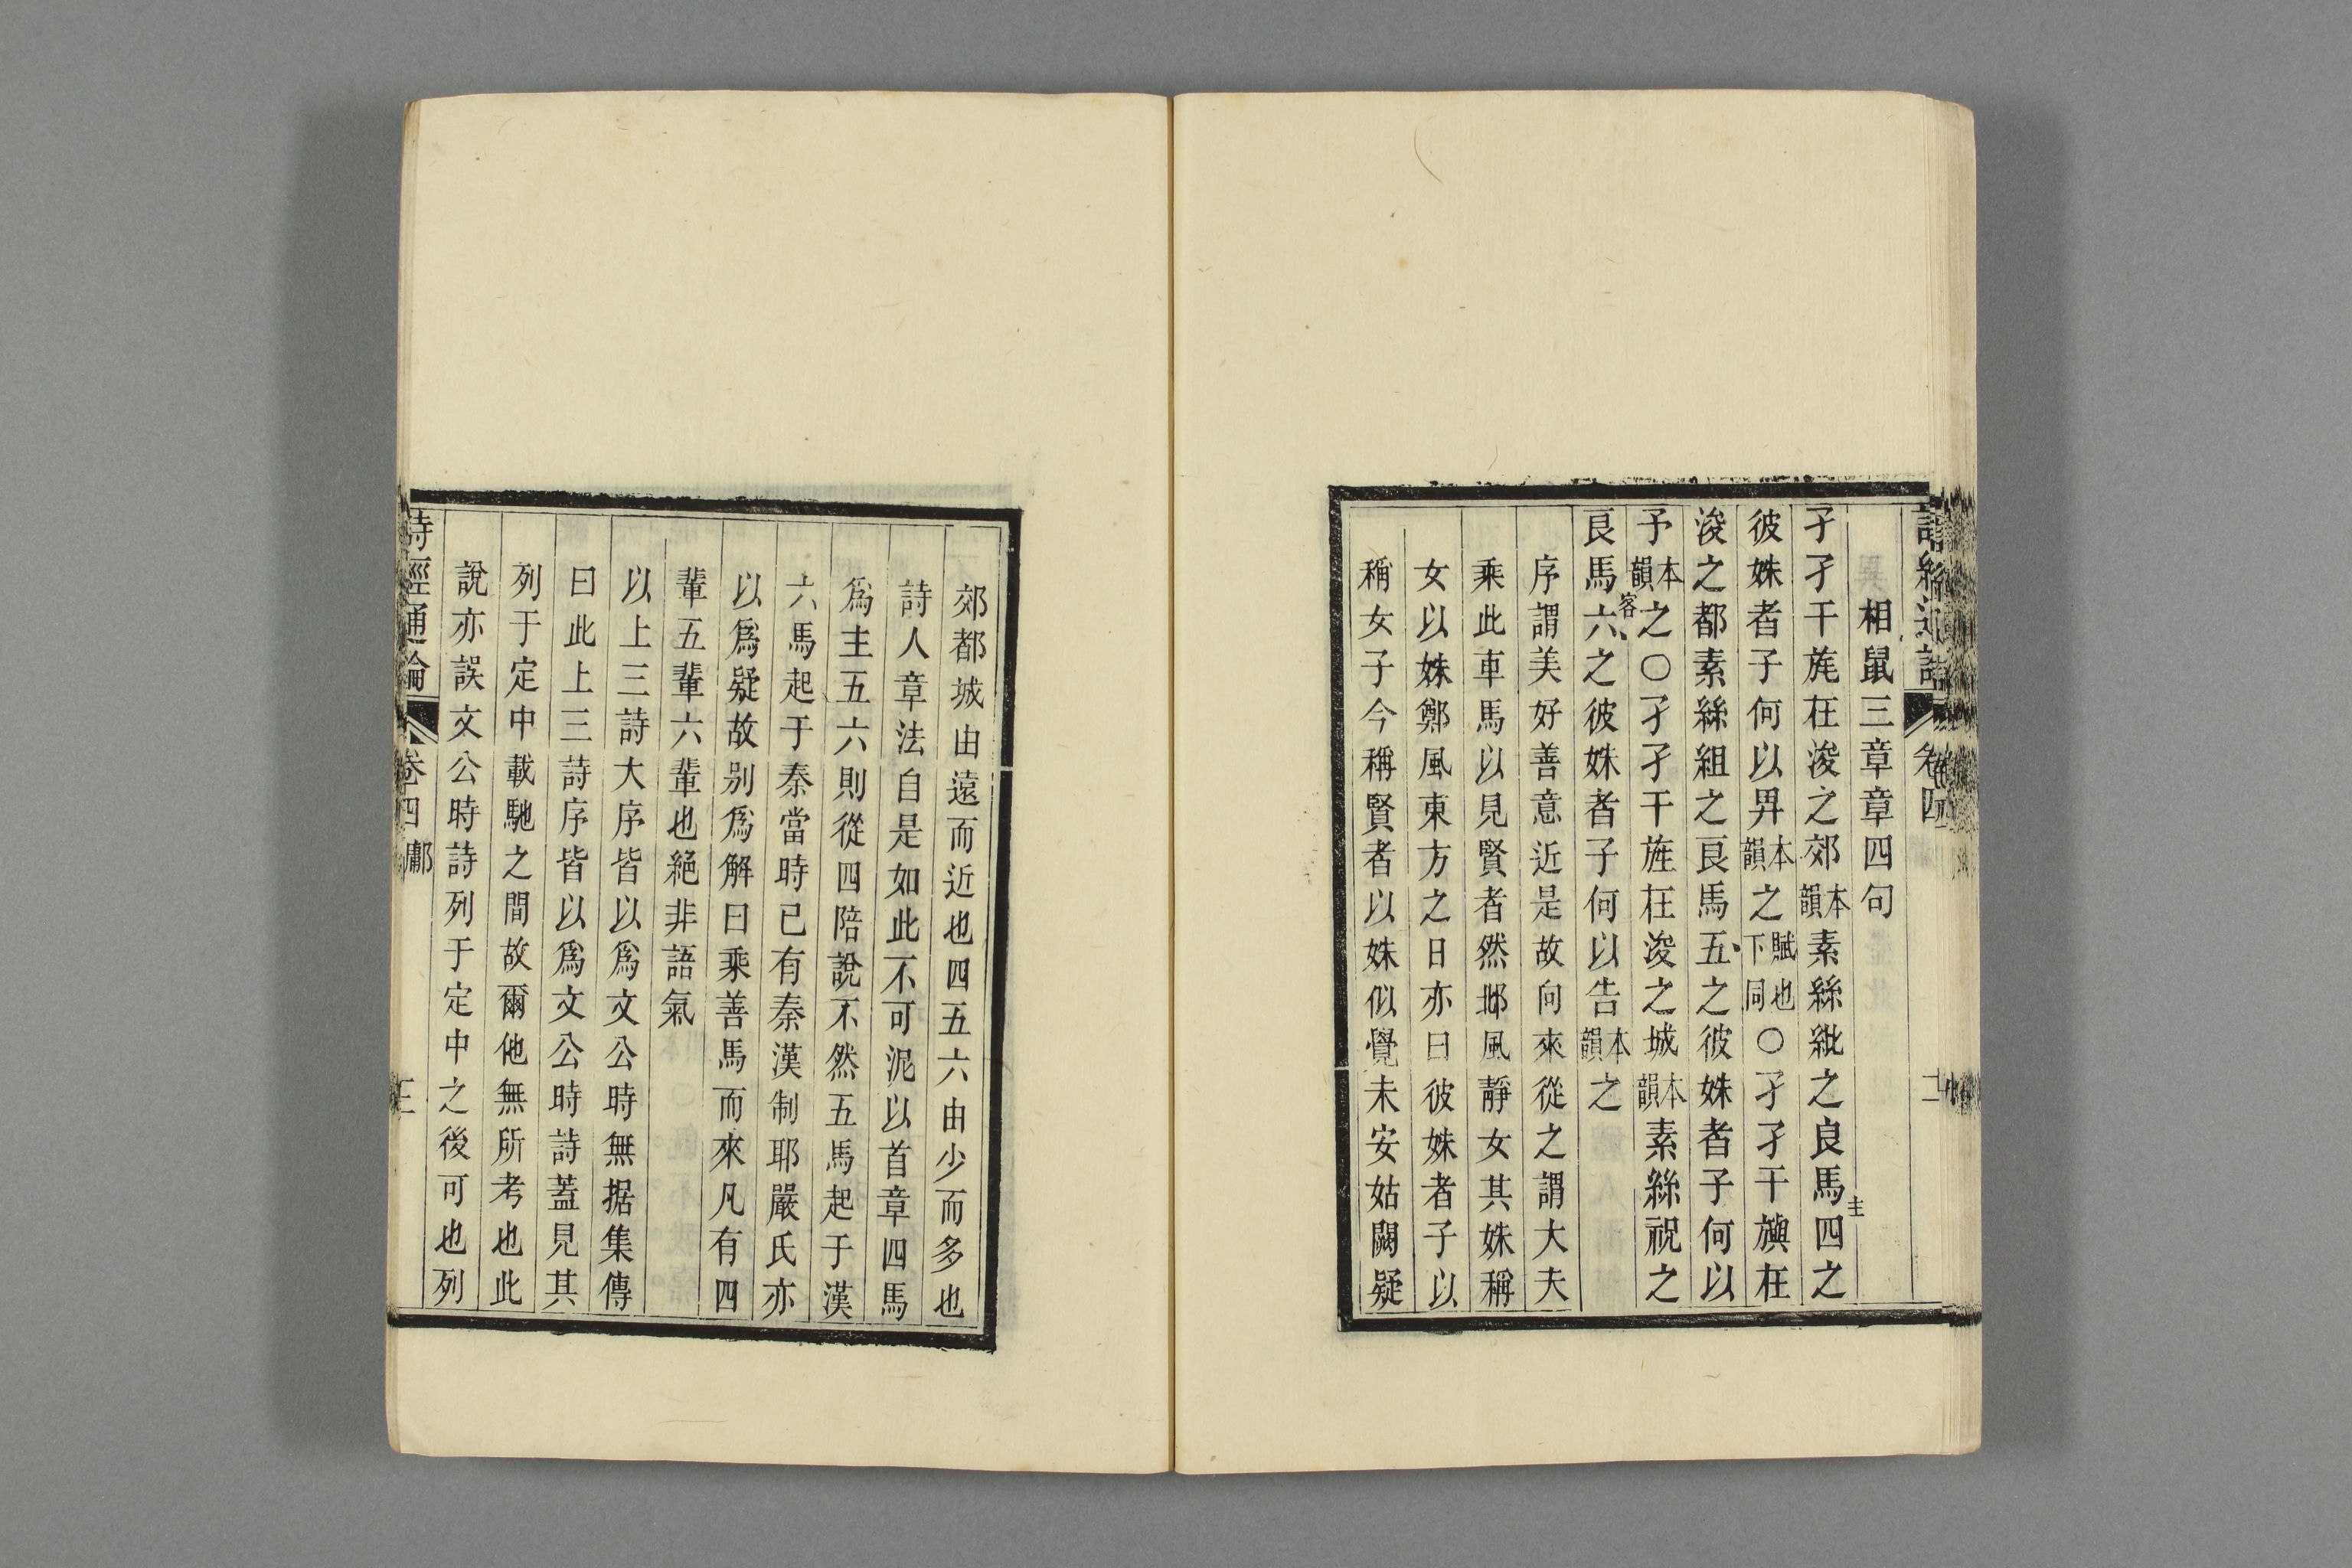 相鼠三章章四句
孑孑干旄在浚之郊本韻素絲紕之良馬四之主
彼姝者子何以畀本韻之賦也下同○孑孑干旟在
浚之都素絲組之良馬五之彼姝者子何以
予本韻之○孑孑干旌在浚之城本韻素絲祝之
良馬六之客彼姝者子何以告本韻之
序謂美好善意近是故向來從之謂大夫
乘此車馬以見賢者然邶風靜女其姝稱
女以姝鄭風東方之日亦曰彼姝者子以
稱女子今稱賢者以姝似覺未安姑闕疑
郊都城由遠而近也四五六由少而多也
詩人章法自是如此不可泥以首章四馬
爲主五六則從四陪說不然五馬起于漢
六馬起于秦當時已有秦漢制耶嚴氏亦
以爲疑故別爲解曰乘善馬而來凡有四
輩五輩六輩也絕非語氣
以上三詩大序皆以爲文公時無据集傳
曰此上三詩序皆以爲文公時詩蓋見其
列于定中載馳之間故爾他無所考也此
說亦誤文公時詩列于定中之後可也列
詩經通論 卷四 鄘